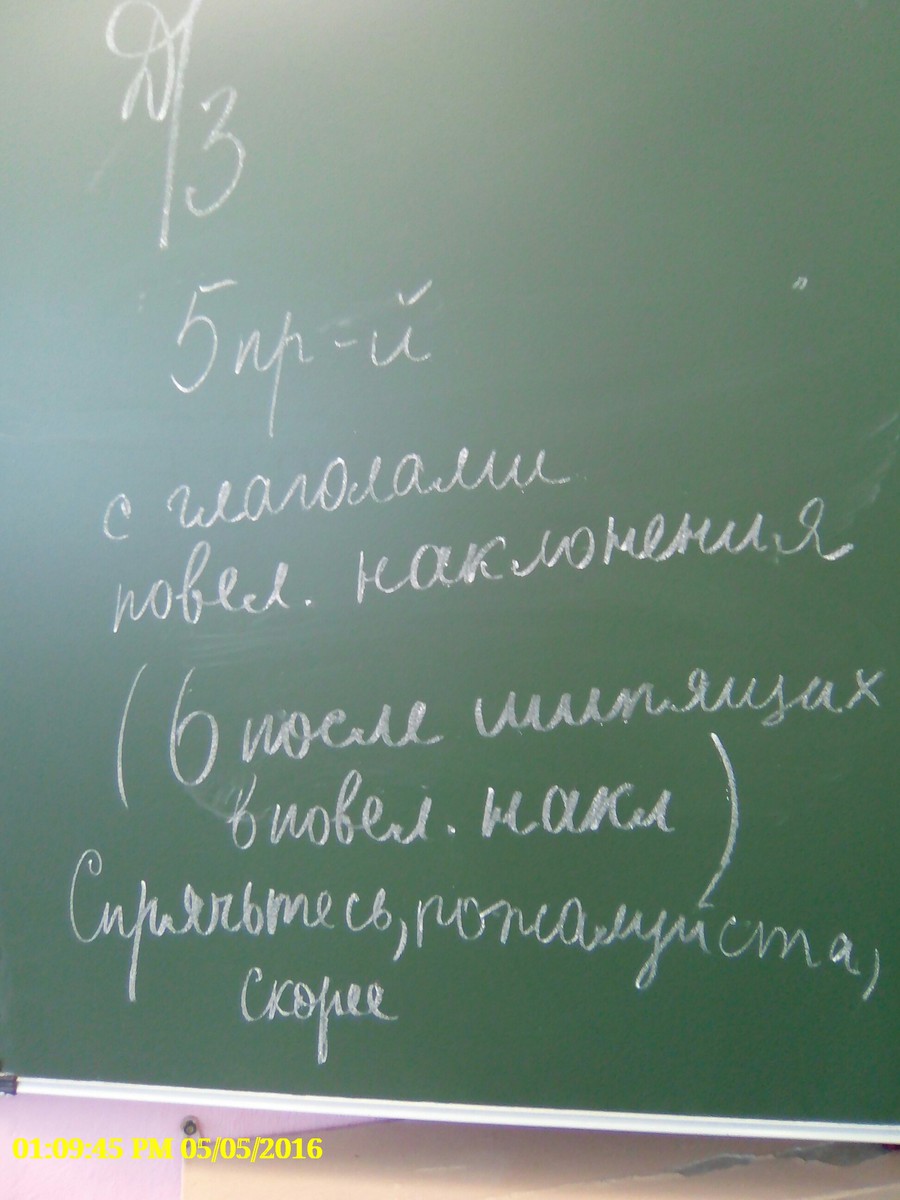 Д/З
5 пр-й
с глаголами
повел. наклонения
(Ь после шипящих
в повел. накл)
Спрячьтесь, пожалуйста,
скорее
01:09:45 PM 05/05/2016